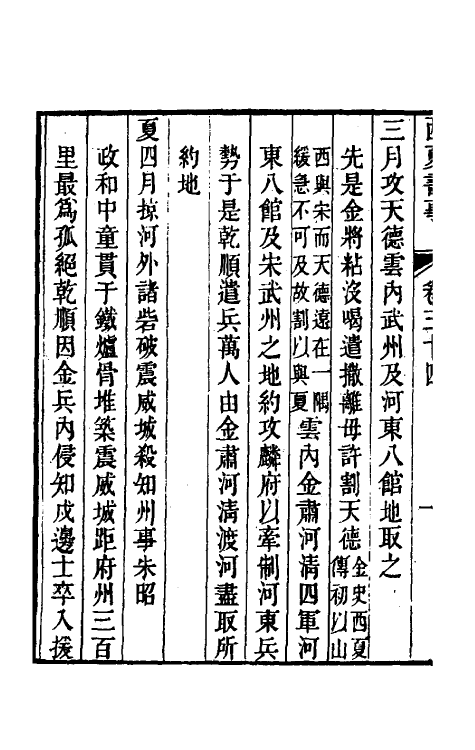 西夏書事 卷三十四 一
三月攻天德雲內武州及河東八館地取之
先是金將粘沒喝遣撒離毋許割天德金史西夏傳初以山
西與宋而天德遠在一隅緩急不可及故割以與夏雲內金肅河清四軍河
東八館及朱武州之地約攻麟府以牽制河東兵
勢于是乾順遣兵萬人由金肅河清渡河盡取所
約地
夏四月掠河外諸砦破震威城殺知州事朱昭
政和中童貫于鐵爐骨堆築震威城距府州三百
里最爲孤絕乾順因金兵內侵知戍邊士卒入援